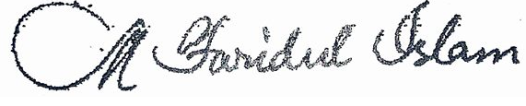 M Faridul Islam